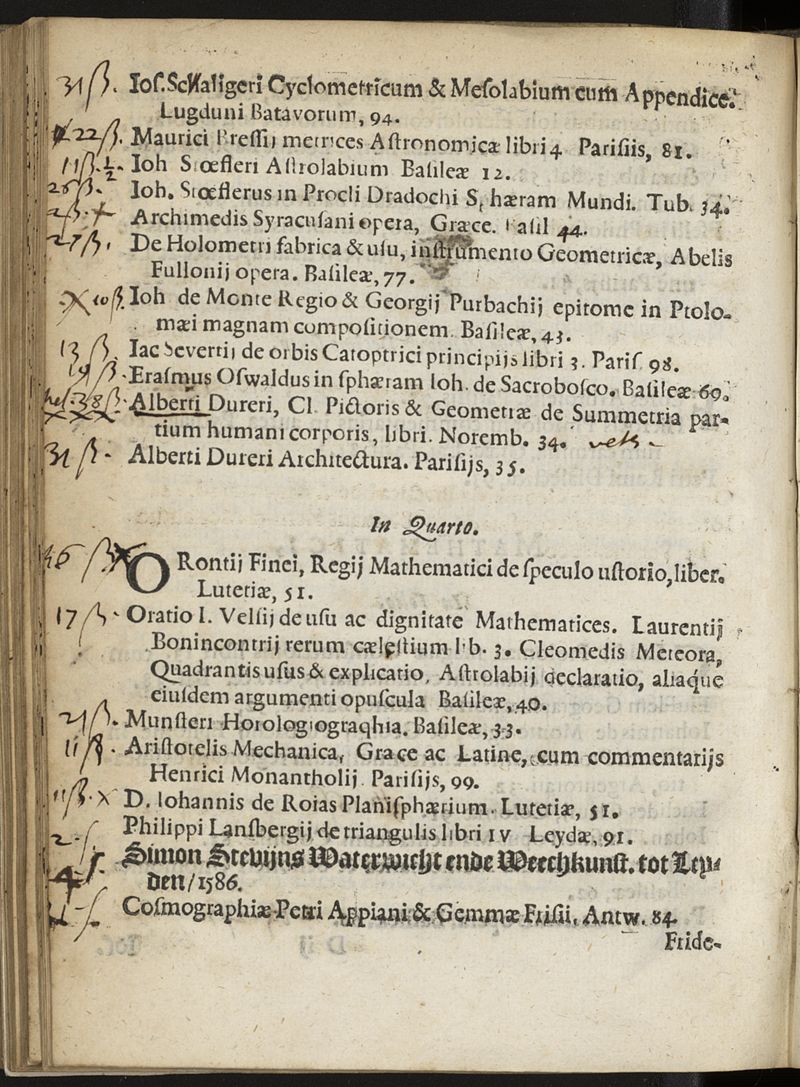 31 ß. Ioſ. Scaligeri Cyclometricum & Meſolabium cum Appendice.
Lugduni Batavorum, 94.
22 ß. Maurici Breſſij metrices Aſtronomicæ libri 4 Pariſiis, 81.
11 ß. ½. Ioh Stœfleri Aſtrolabium Baſileæ 12.
Ioh. Stœflerus in Procli Dradochi Sphæram Mundi. Tub. 34.
2 ß. + Archimedis Syracuſani opera, Græce. Baſil 44.
27 ß. De Holometri fabrica & uſu, inſtrumento Geometricæ, Abelis
Fullonij opera. Baſileæ, 77.
X 10 ß. Ioh de Monte Regio & Georgij Purbachij epitome in Ptolo-
mæi magnam compoſitionem. Baſileæ, 43.
13 ß. Iac Severtij de orbis Catoptrici principijs libri 3. Pariſ 98.
19 ß. Eraſmus Oſwaldus in ſphæram Ioh. de Sacroboſco. Baſileæ 69.
38 ß. Alberti Dureri, Cl. Pictoris & Geometræ de Summetria par-
tium humani corporis, libri. Noremb. 34.
31 ß. Alberti Dureri Architectura. Pariſijs, 35.
In Quarto.
46 ß X ORontij Finei, Regij Mathematici de ſpeculo uſtorio, liber.
Lutetiæ, 51.
17 ß. Oratio I. Velſij de uſu ac dignitate Mathematices. Laurentij
Bonincontrij rerum cæleſtium lib. 3. Cleomedis Meteora,
Quadrantis uſus & explicatio, Aſtrolabij declaratio, aliaque
eiuſdem argumenti opuſcula Baſileæ, 40.
21 ß. Munſteri Horologiograqhia. Baſileæ, 33.
11 ß. Ariſtotelis Mechanica, Græce ac Latine, cum commentarijs
Henrici Monantholij Pariſijs, 99.
11 ß. X D. Iohannis de Roias Planiſphærium. Lutetiæ, 51.
2 - ſ Philippi Lanſbergij de triangulis libri IV Leydæ, 91.
4 ſ. Simon Stevijns Waterwicht ende Weechkunſt. tot Ley-
den/1586.
Coſmographiæ Petri Appiani & Gemmæ Friſii. Antw. 84.
Fride-